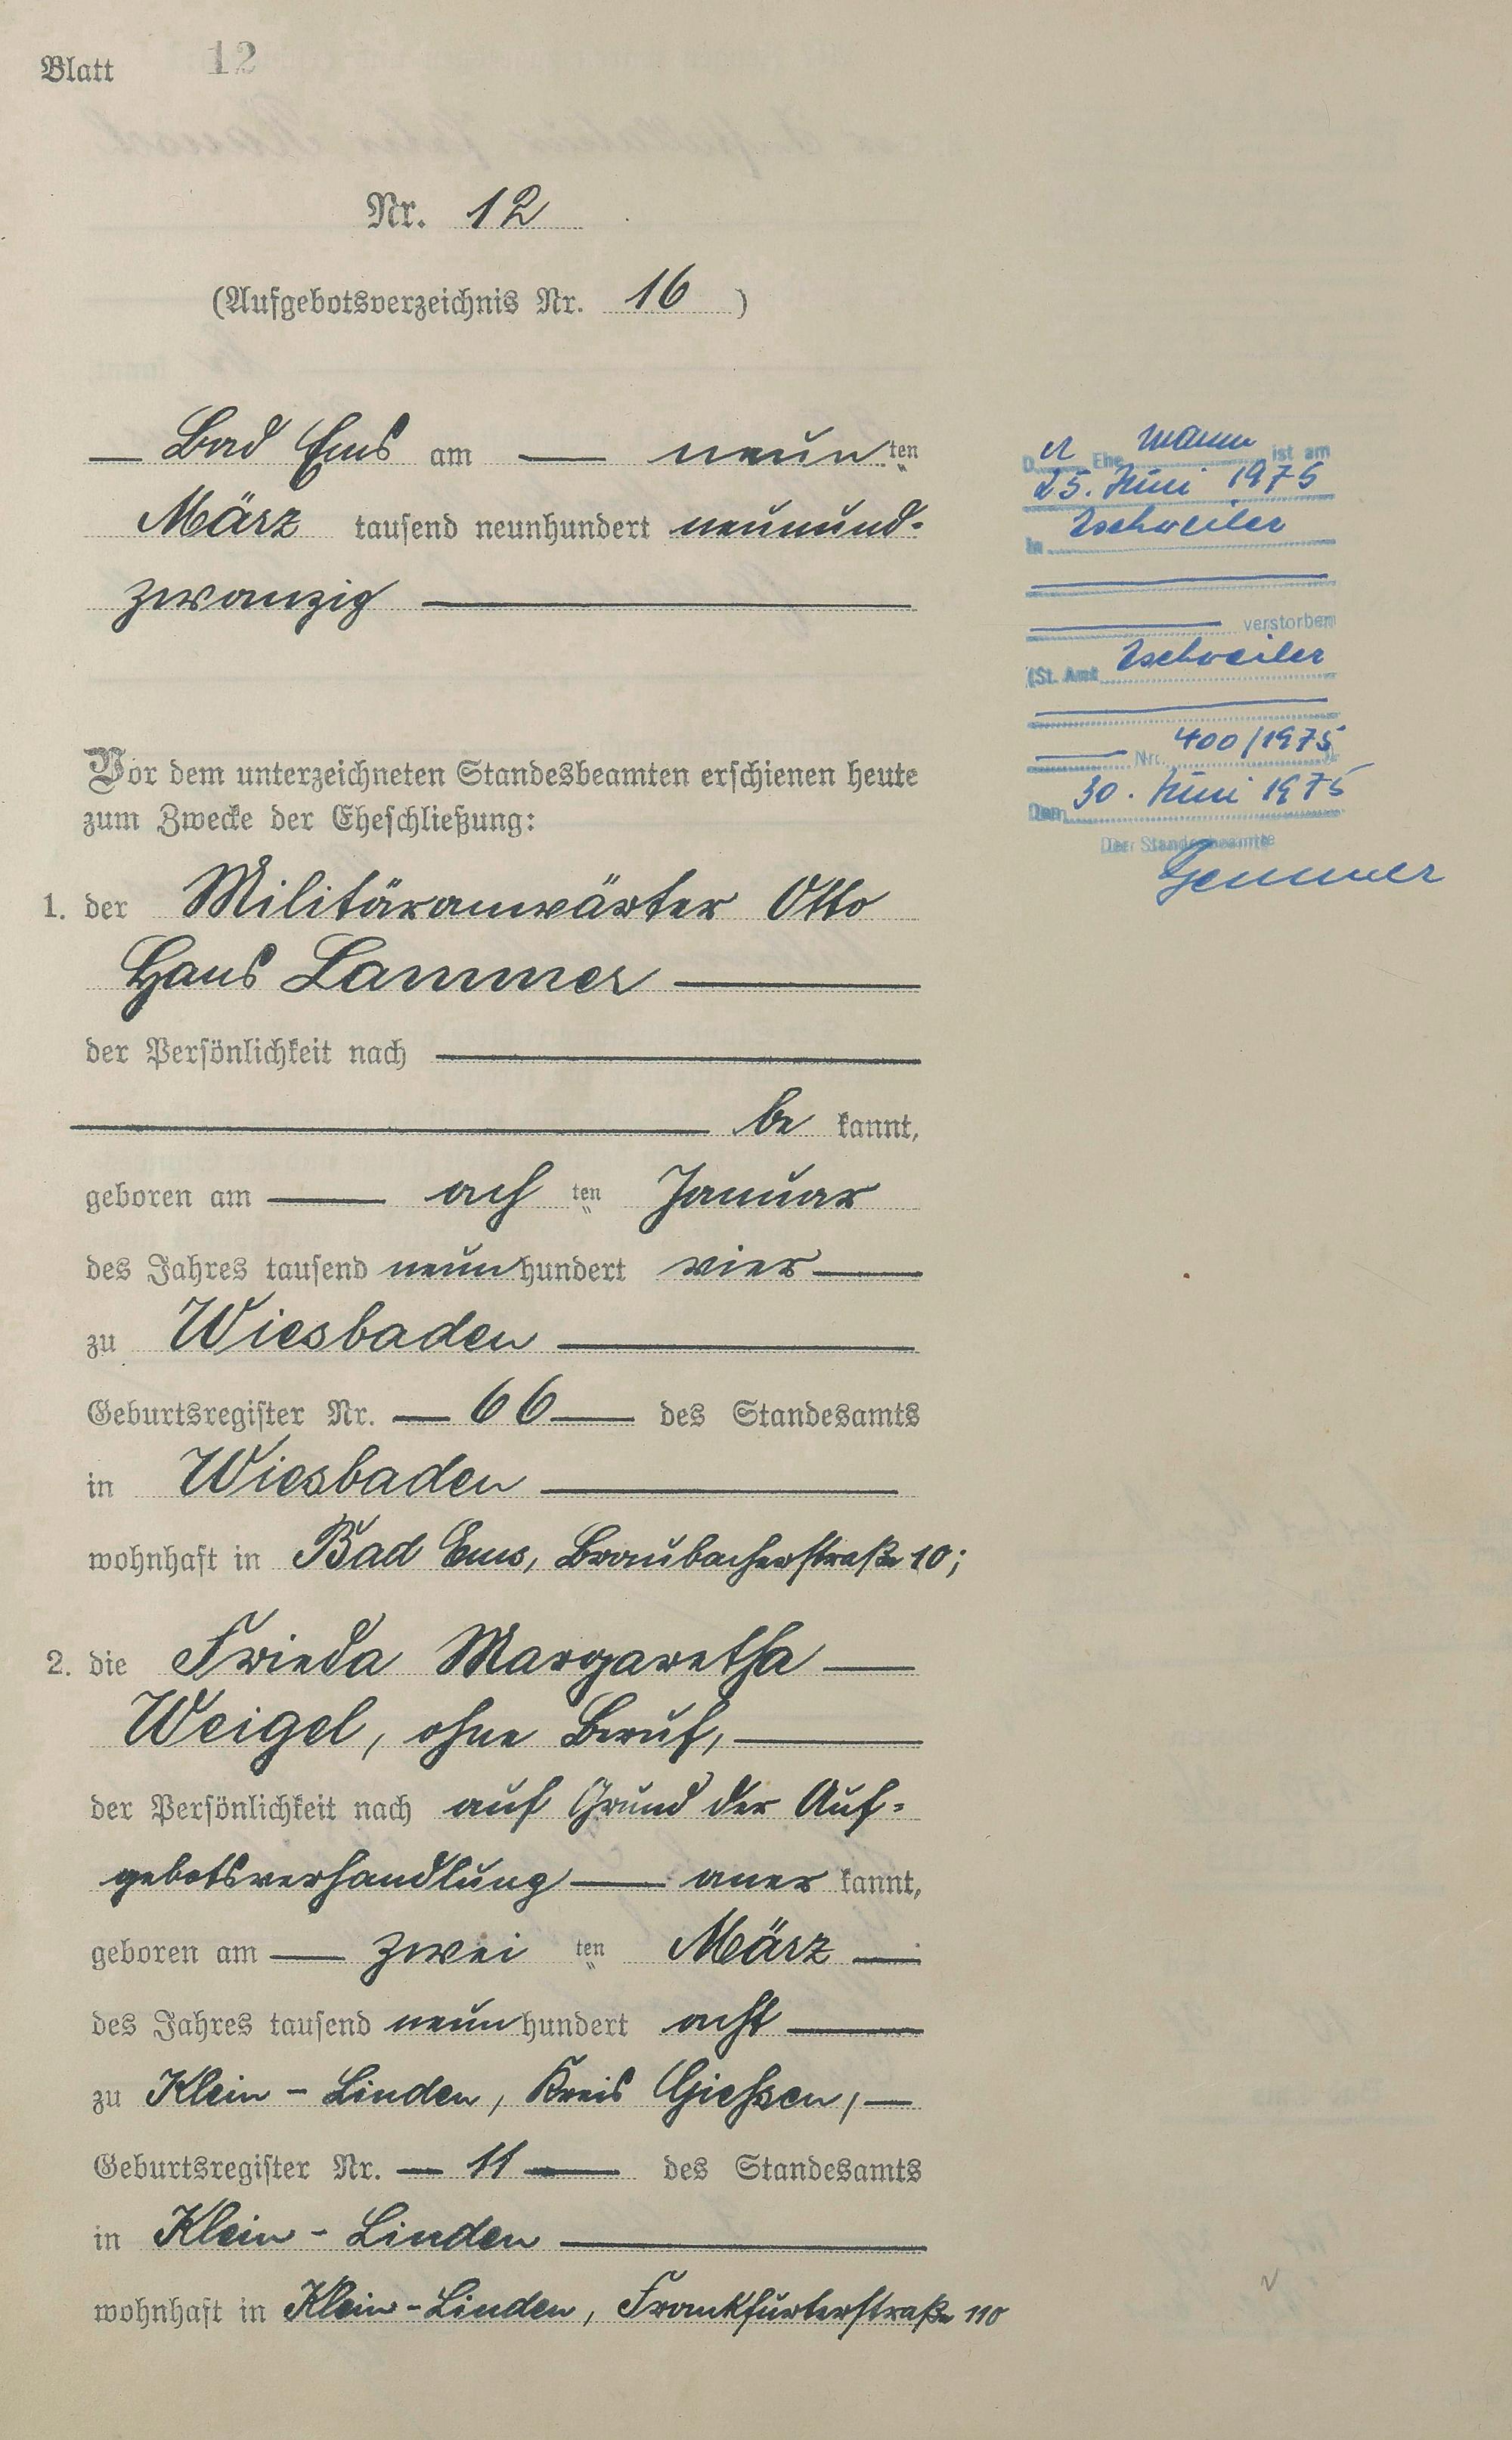 Blatt 12
Nr. 12
(Aufgebotsverzeichnis Nr. 16 )
Bad Ems am neunten
März tausend neunhundert neunund-
zwanzig
Vor dem unterzeichneten Standesbeamten erschienen heute
zum Zwecke der Eheschließung:
1. der Militäranwärter Otto
Hans Lammer
der Persönlichkeit nach
be kannt,
geboren am ach ten Januar
des Jahres tausend neun hundert vier
zu Wiesbaden
Geburtsregister Nr. 66 des Standesamts
in Wiesbaden
wohnhaft in Bad Ems, Braubacherstraße 10;
2. die Frieda Margaretha
Weigel, ohne Beruf,
der Persönlichkeit nach auf Grund der Auf-
gebotsverhandlung aner kannt,
geboren am zwei ten März
des Jahres tausend neun hundert acht
zu Klein-Linden, Kreis Giessen,
Geburtsregister Nr. 11 des Standesamts
in Klein-Linden
wohnhaft in Klein-Linden, Frankfurterstraße 110
Der Ehemann ist am
25. Juni 1975
in Eschweiler
verstorben
(St. Amt Eschweiler
Nr. 400/1975)
Den 30. Juni 1975
Der Standesbeamte